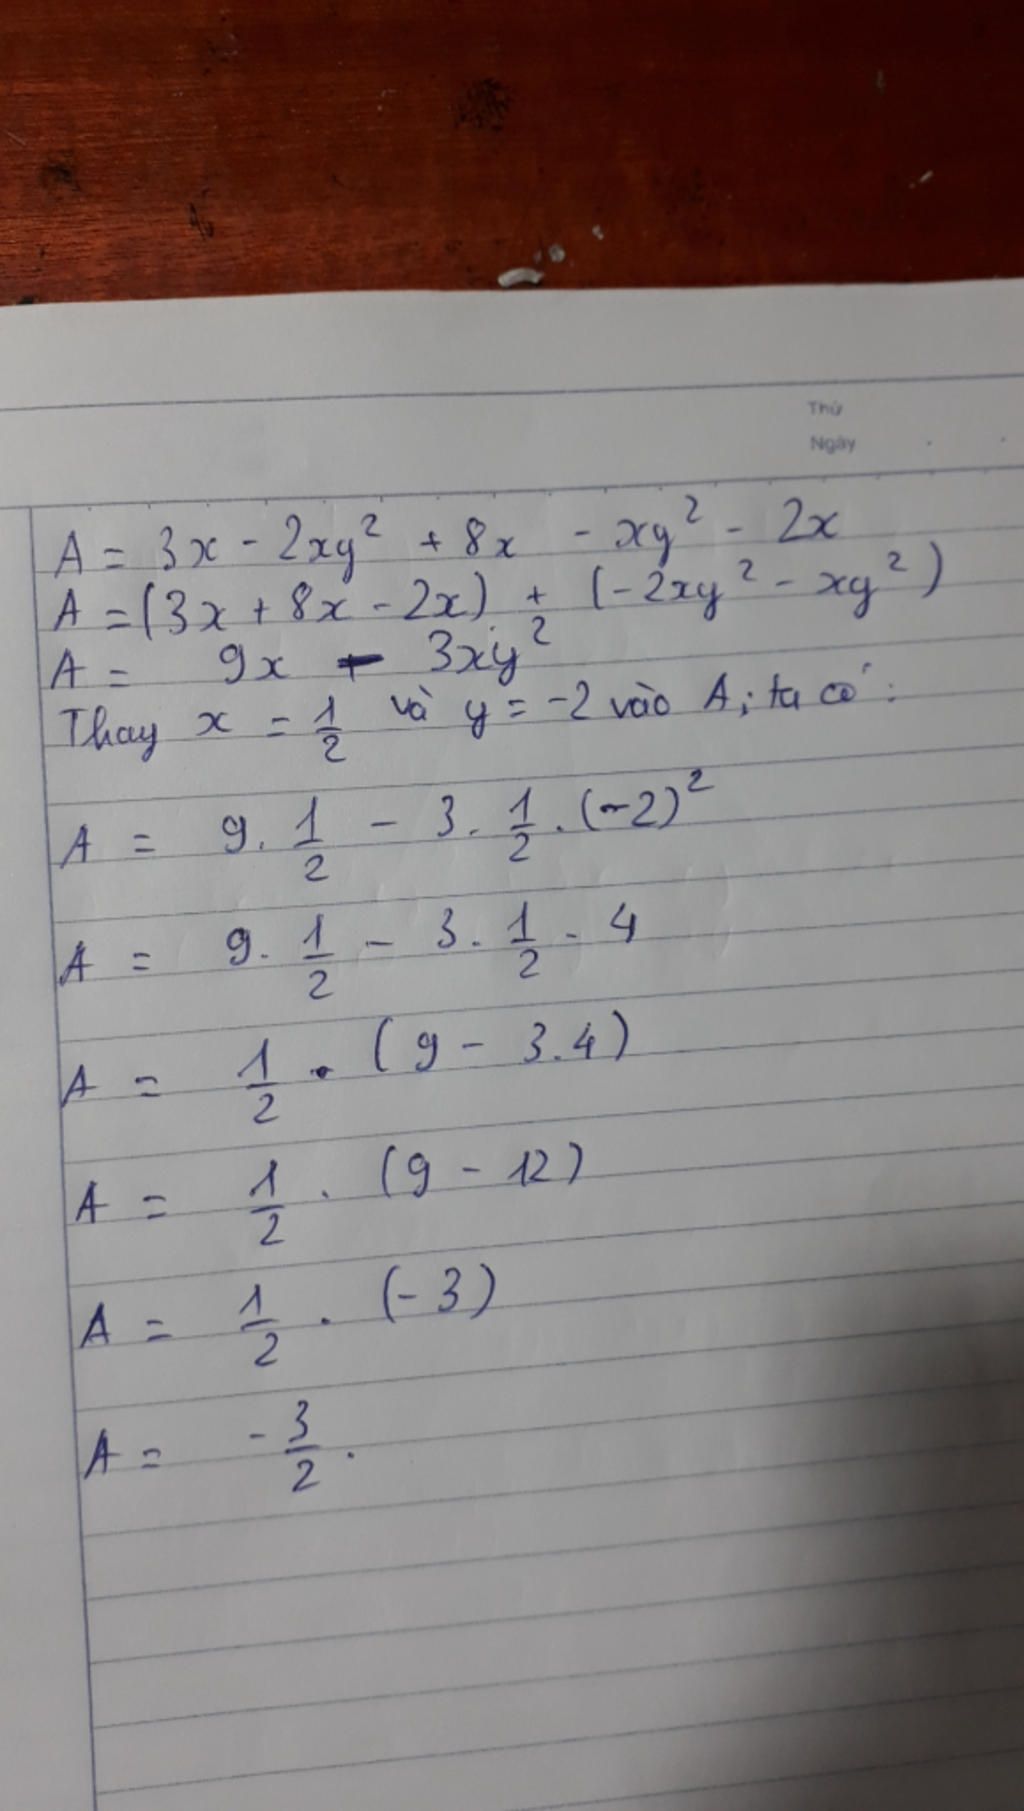 Thứ
Ngày
A = 3x - 2xy² + 8x - xy² - 2x
A = (3x + 8x - 2x) + (-2xy² - xy²)
A = 9x - 3xy²
Thay x = 1/2 và y = -2 vào A; ta có:
A = 9. 1/2 - 3. 1/2 . (-2)²
A = 9. 1/2 - 3. 1/2 . 4
A = 1/2 . (9 - 3.4)
A = 1/2 . (9 - 12)
A = 1/2 . (-3)
A = - 3/2 .